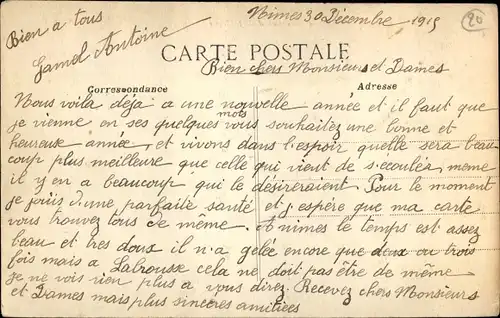 Bien a tous
Gamel Antoine
Nimes 30 Décembre 1915
20
CARTE POSTALE
Bien chers Monsieurs et Dames
Correspondance
Adresse
Nous voila déja a une nouvelle année et il faut que
je vienne en ses quelques mots vous souhaitez une bonne et
heureuse année, et vivons dans l'espoir quelle sera beau-
coup plus meilleure que celle qui vient de s'ecouléz, meme
il y en a beaucoup qui le désireraient. Pour le moment
je jouis d'une parfaite santé et j'espère que ma carte
vous trouvez tous de même. A nimes le temps est assez
beau et tres doux il n'a gelée encore que deux ou trois
fois mais a Lalrousse cela ne doit pas être de même
je ne vois rien plus a vous direz. Recevez chers Monsieurs
et Dames mes plus sincères amitiées